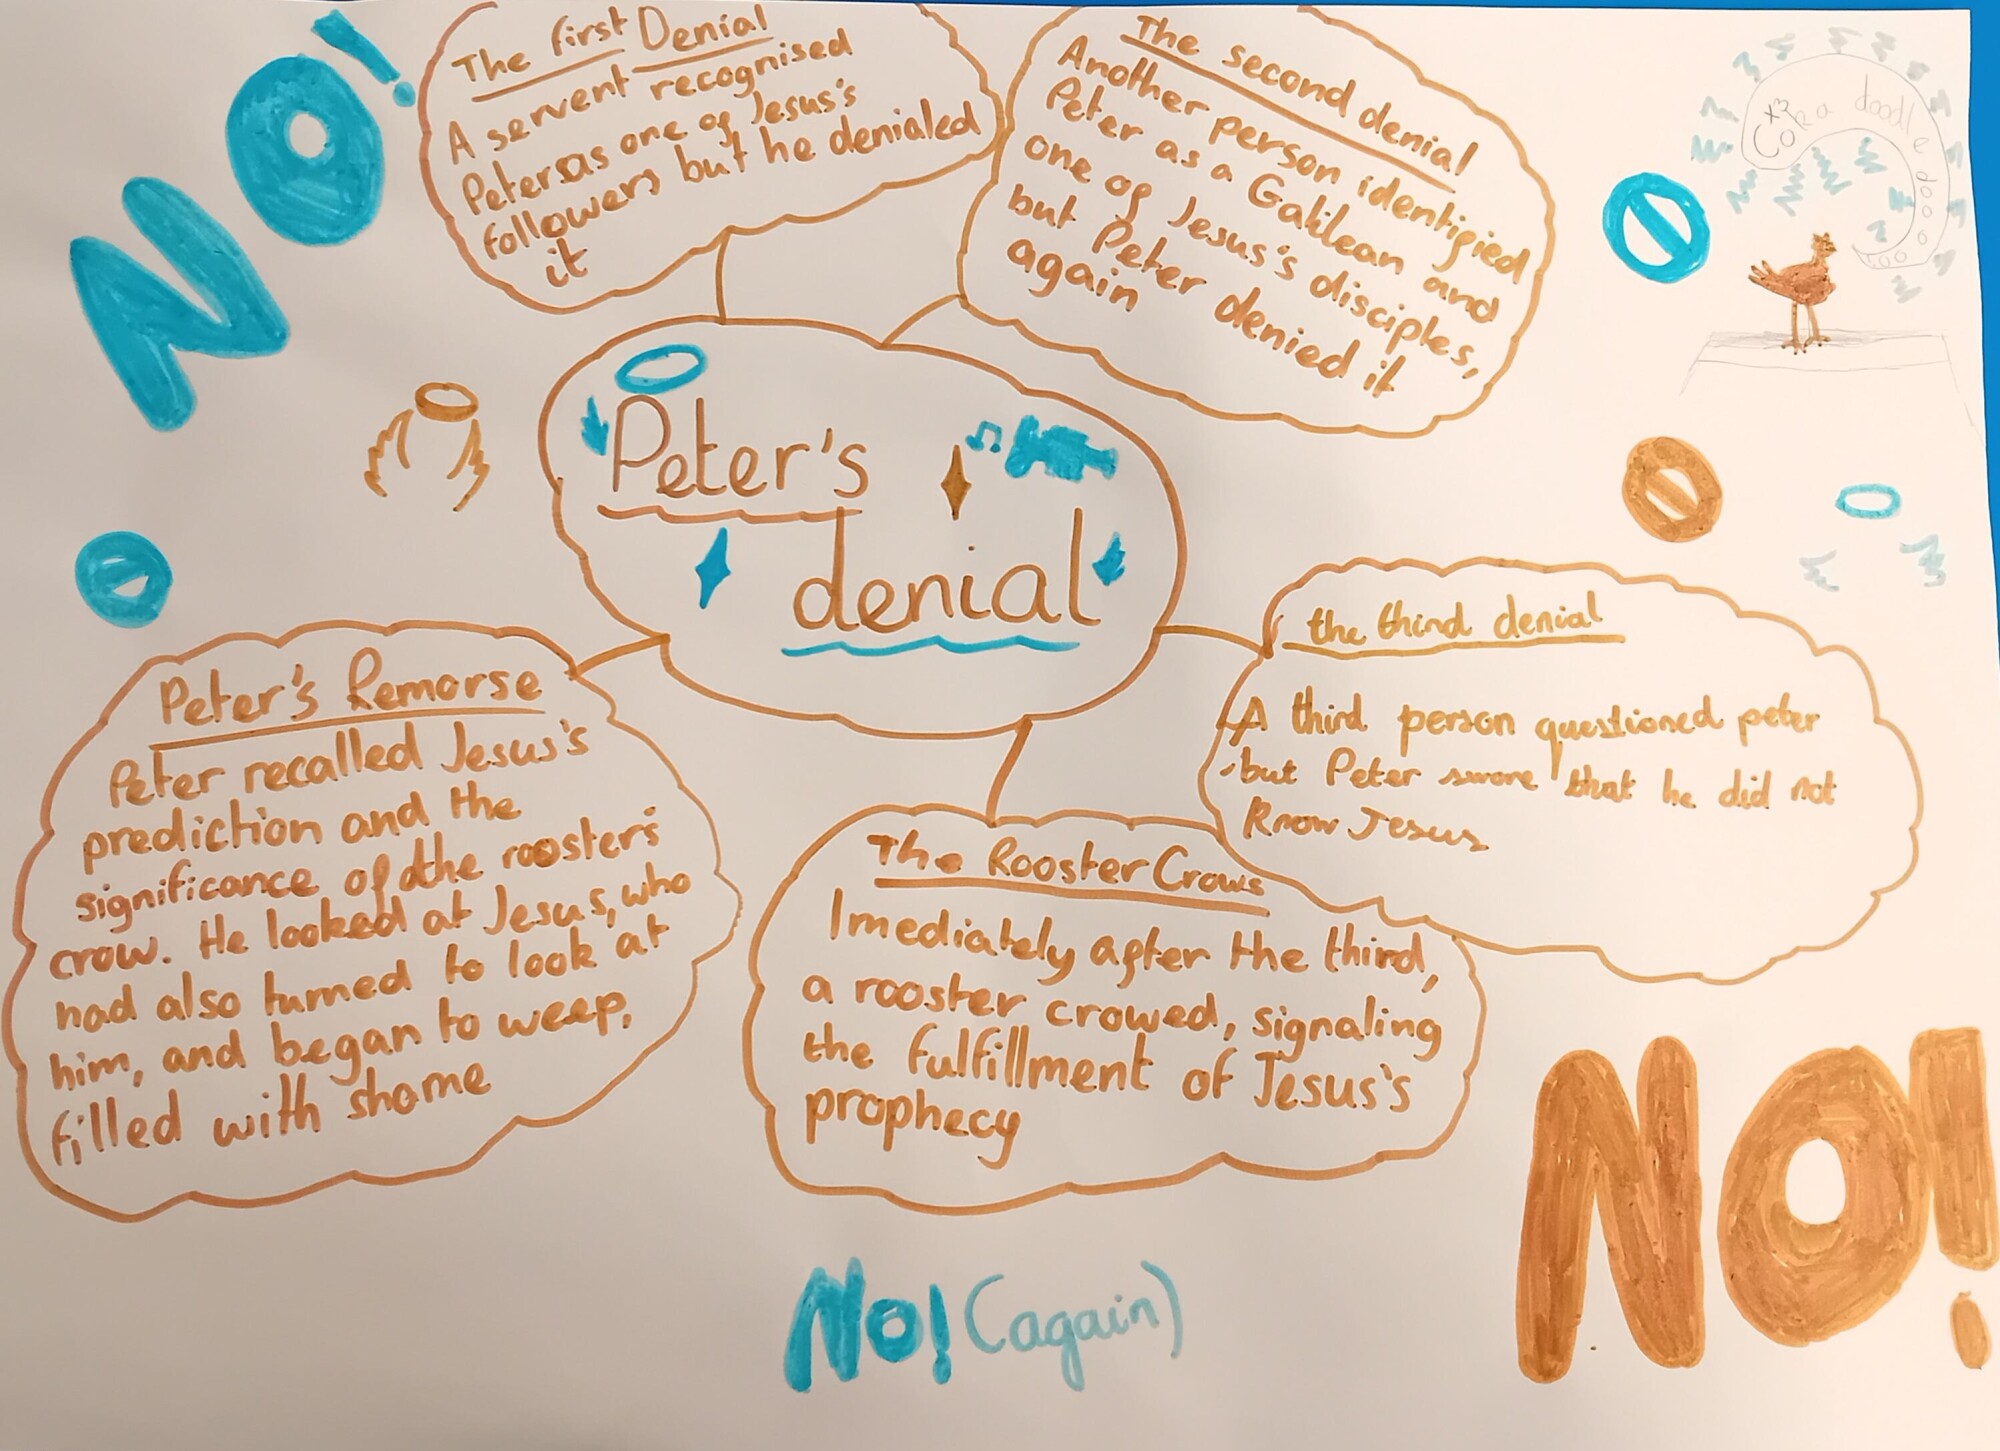 NO!
The first Denial
A servent recognised
Petersas one of Jesus's
followers but he denialed
it
The second denial
Another person identified
Peter as a Galilean and
one of Jesus's disciples,
but Peter denied it
again
Peter's
denial
the third denial
A third person questioned peter
but Peter swore that he did not
Know Jesus
Peter's Remorse
Peter recalled Jesus's
prediction and the
significance of the rooster's
crow. He looked at Jesus, who
had also turned to look at
him, and began to weep,
filled with shame
The Rooster Crows
Imediately after the third,
a rooster crowed, signaling
the fulfillment of Jesus's
prophecy
NO! (again)
NO!